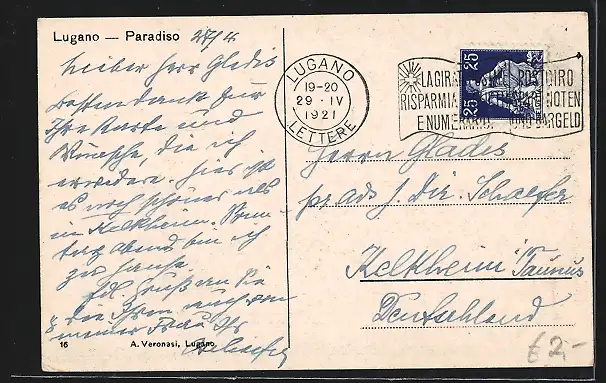 Lugano — Paradiso 28/4
Lieber Herr Gladis
Besten Dank für
Ihre Karte und
Wünsche, die ich
erwidere. Hier ist
es noch schöner als
in Kelkheim. Sonn-
tag abend bin ich
zu Hause.
Hl. Grüße an Sie
& die Ihren auch von
meiner Frau Ihr
16 A. Veronasi, Lugano.
LUGANO
19-20
29·IV
1921
LETTERE
LA GIRATA POSTGIRO
RISPARMIA NOTEN
E NUMERARIO UND BARGELD
25 25
Herrn Gladis
pr. ads J. Dir. Schaefer
Kelkheim Taunus
Deutschland
€ 2.-